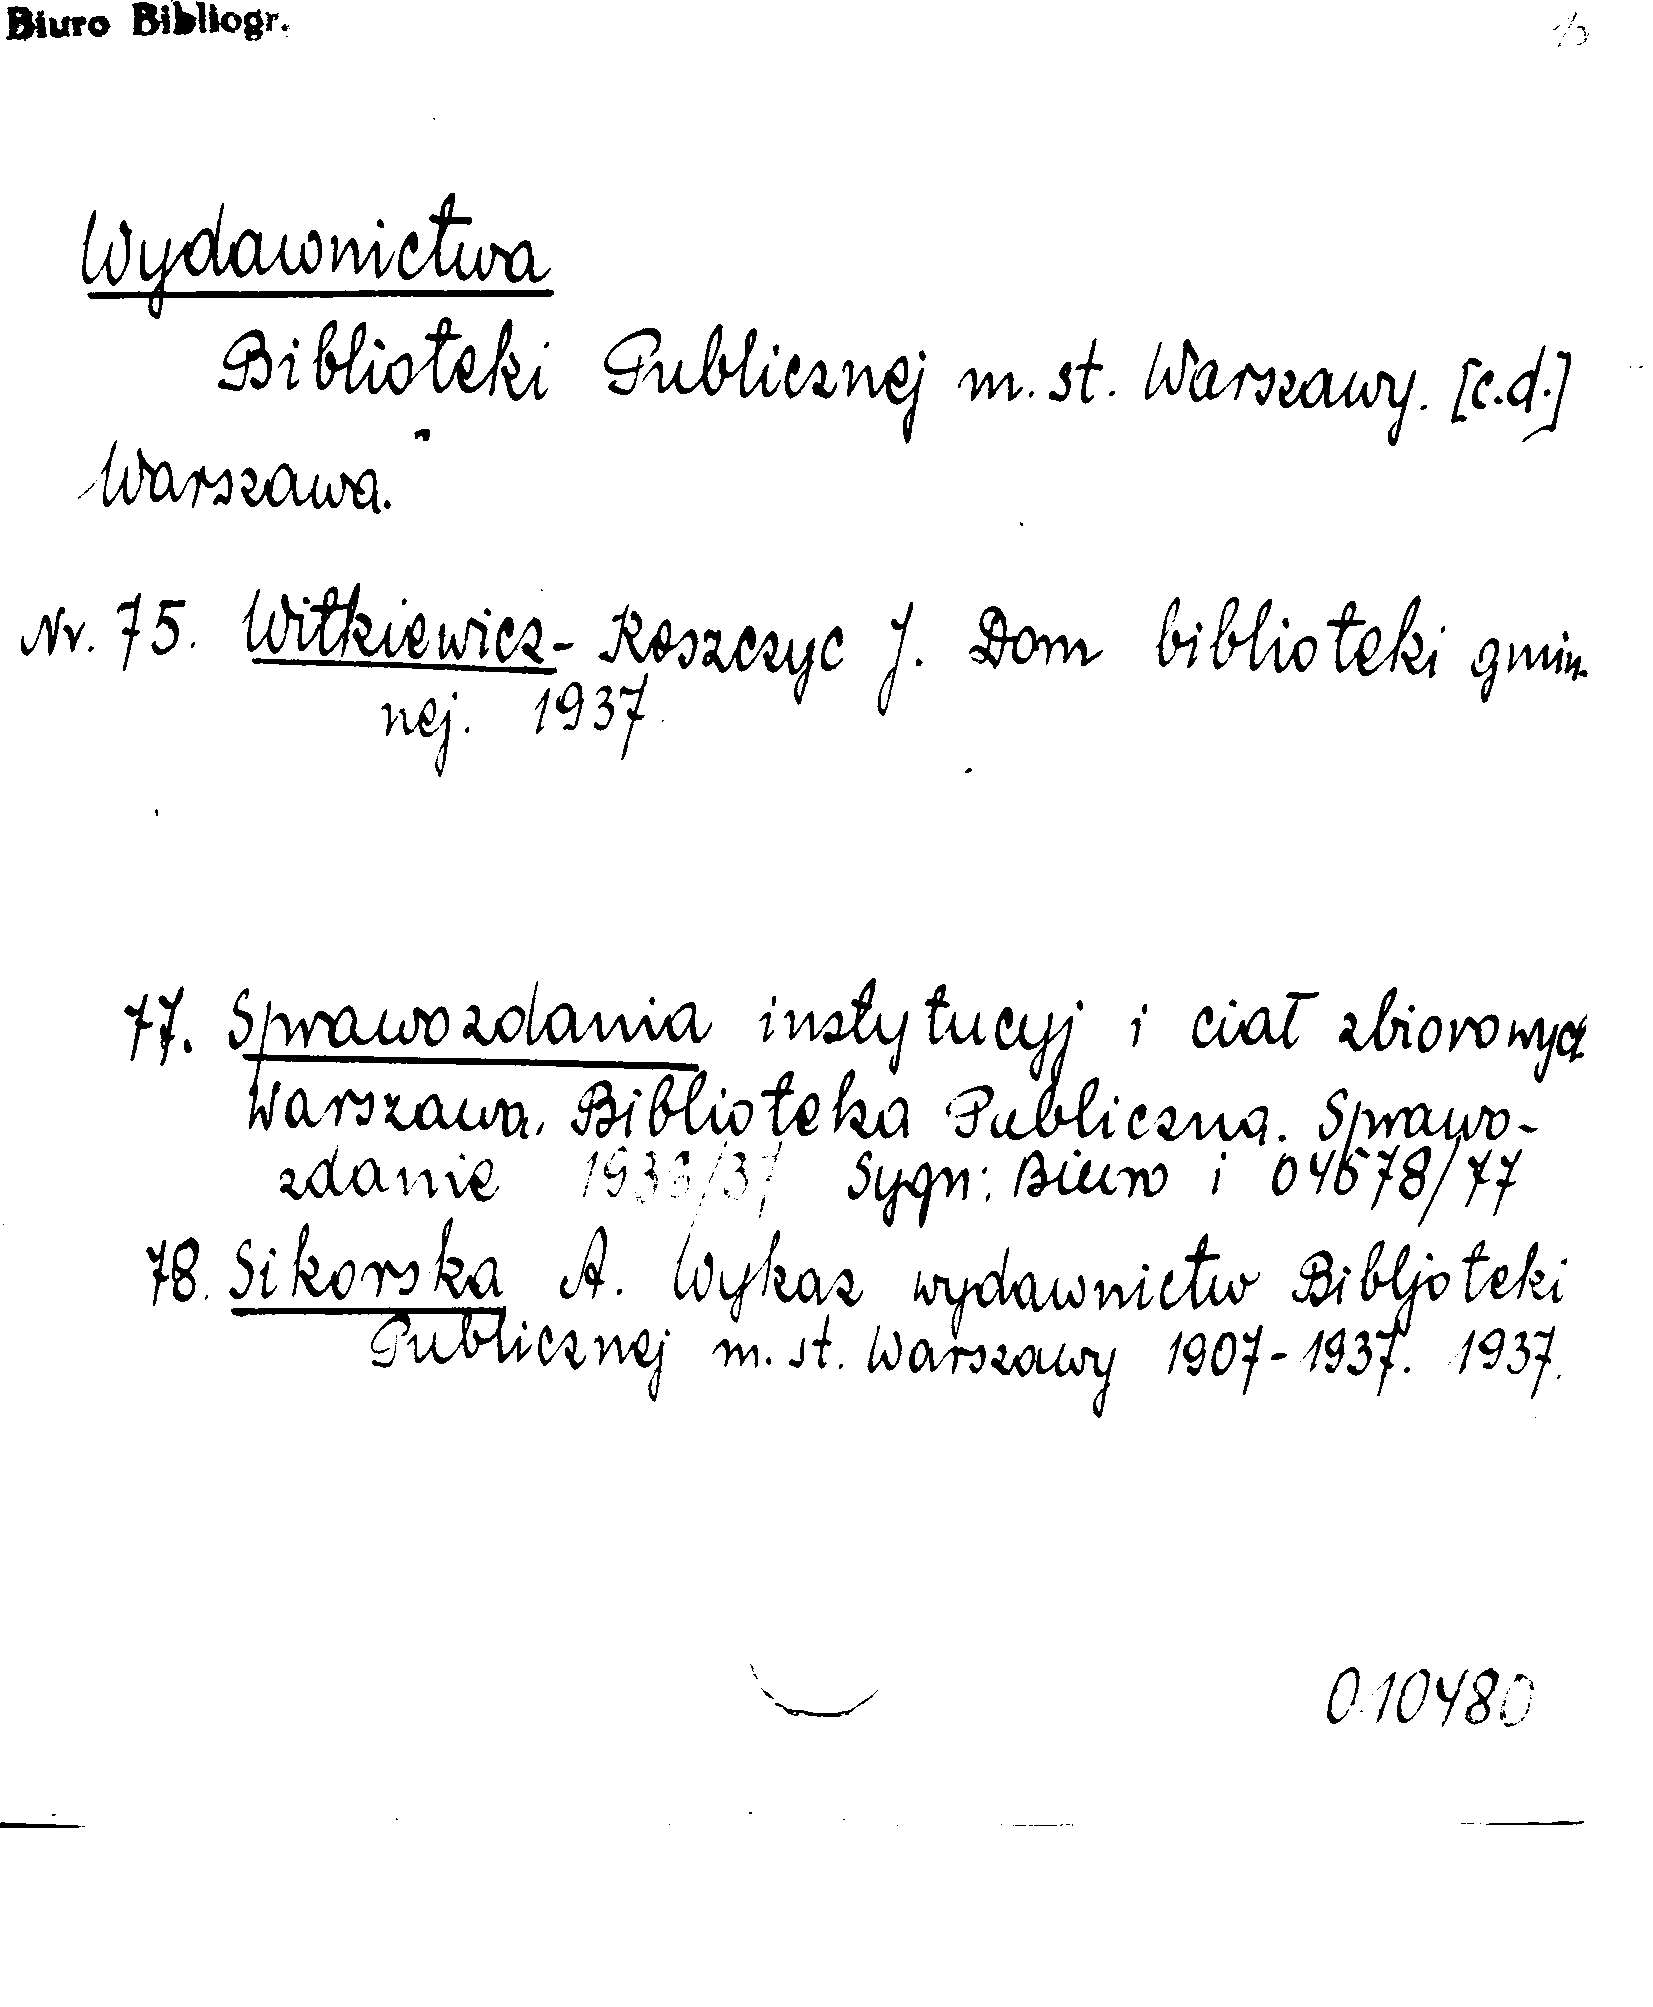 Biuro Bibliogr.
Wydawnictwa
Biblioteki Publicznej m. st. Warszawy. [c.d.]
Warszawa.
Nr. 75. Witkiewicz-Koszczyc J. Dom biblioteki gmin-
nej. 1937
77. Sprawozdania instytucyj i ciał zbiorowych
Warszawa. Biblioteka Publiczna. Sprawo-
zdanie 1936/37 Sygn: Biuro i 04678/77
78. Sikorska A. Wykaz wydawnictw Bibljoteki
Publicznej m. st. Warszawy 1907-1937. 1937.
0.10480